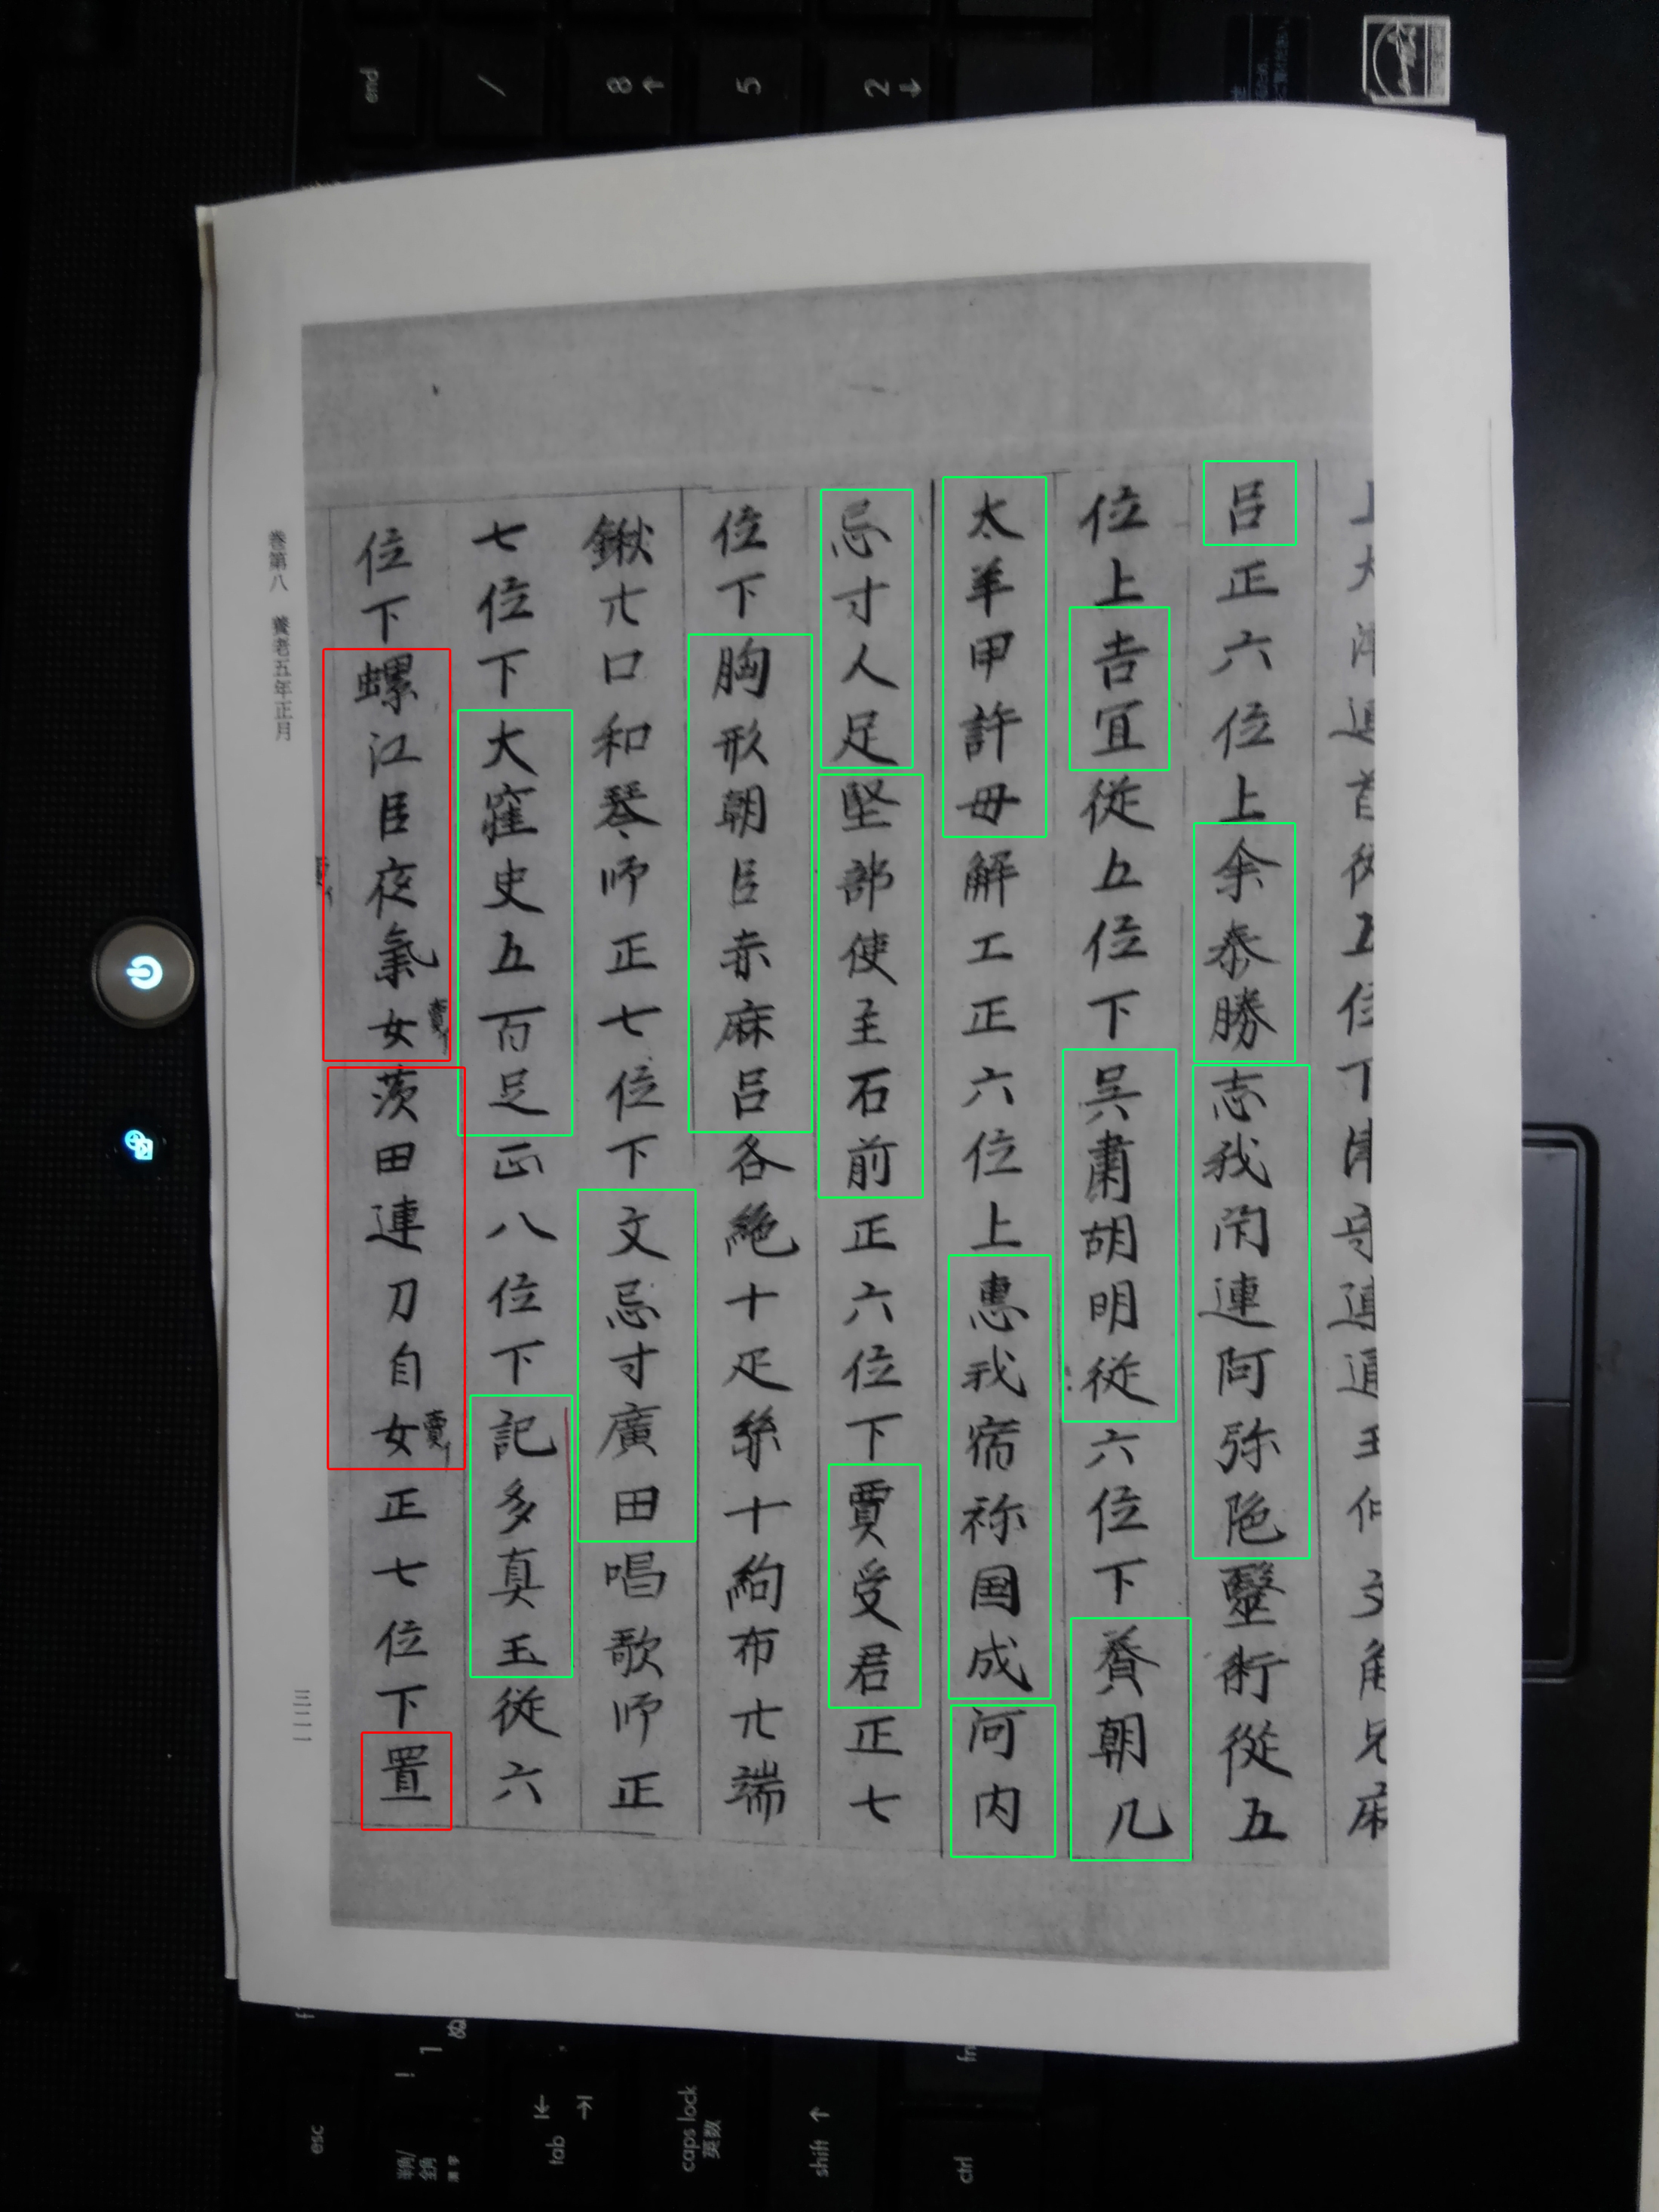 呂正六位上余泰勝志我閇連阿弥陁毉術從五
位上吉冝從五位下呉肅胡明從六位下賁朝几
太羊甲許毋解工正六位上惠我宿祢国成河内
忌寸人足堅部使主石前正六位下賈受君正七
位下胸形朝臣赤麻呂各絁十疋絲十絇布廿端
鍬廿口和琴师正七位下文忌寸廣田唱歌师正
七位下大窪史五百足正八位下記多真玉從六
位下螺江臣夜氣女賣茨田連刀自女賣正七位下置
巻第八 養老五年正月
三二一
end
/
8 ↑
5
2 ↓
esc
半角/全角 漢字
! 1 ぬ
tab
caps lock 英数
shift ↑
fn
ctrl